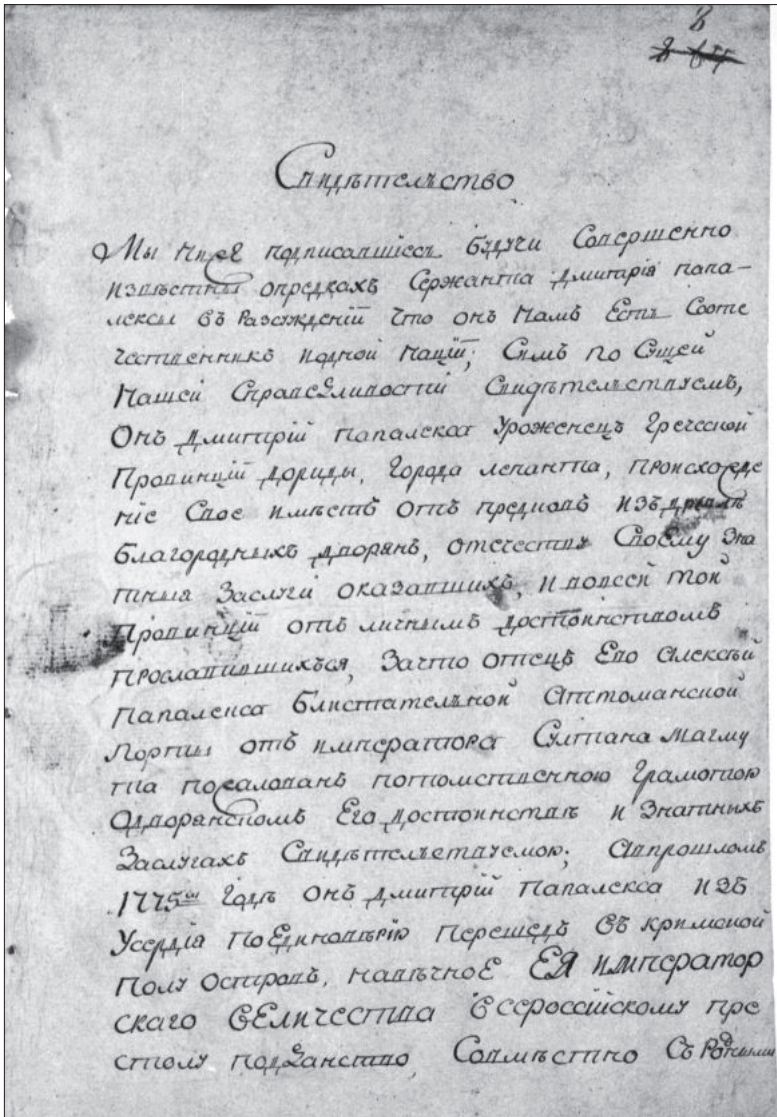 8
Свидѣтельство
Мы ниже подписавшіесь будучи Совершенно
извѣстны опредкахъ Сержанта Дмитрія папа-
лексы въ Разсужденіи что онъ Намъ Есть Сооте
чественникъ иодной націй; Симъ по Сущей
Нашей Справедливостій Свидѣтельствуемъ,
Онъ Дмитрій папалекса Уроженецъ Греческой
Провинцій Дориды, Города лепанта, происхожде
ніе Свое имѣетъ отъ предковъ изъ
благородныхъ дворянъ, отечеству Своему Зна
тныя Заслуги оказавшихъ, иповсей той
Провинцій отъличнымъ достоинствомъ
прославившихъся, Зачто отецъ Его Алексѣй
Папалекса блистательной Аттоманской
Порты отъ императора Султана Магму
та пожалованъ потомственною Грамотою
Одворянскомъ Его достоинствѣ и Знатныхъ
Заслугахъ Свидѣтельствуемою; Авпрошломъ
1775ом Годѣ онъ Дмитрій Папалекса изъ
Усердія поЕдиновѣрію перешедъ въ кримской
полу островъ, навѣчноЕ ЕЯ император
скаго вЕличества всероссійскому пре
столу подданство, Совмѣстно Съ Родными